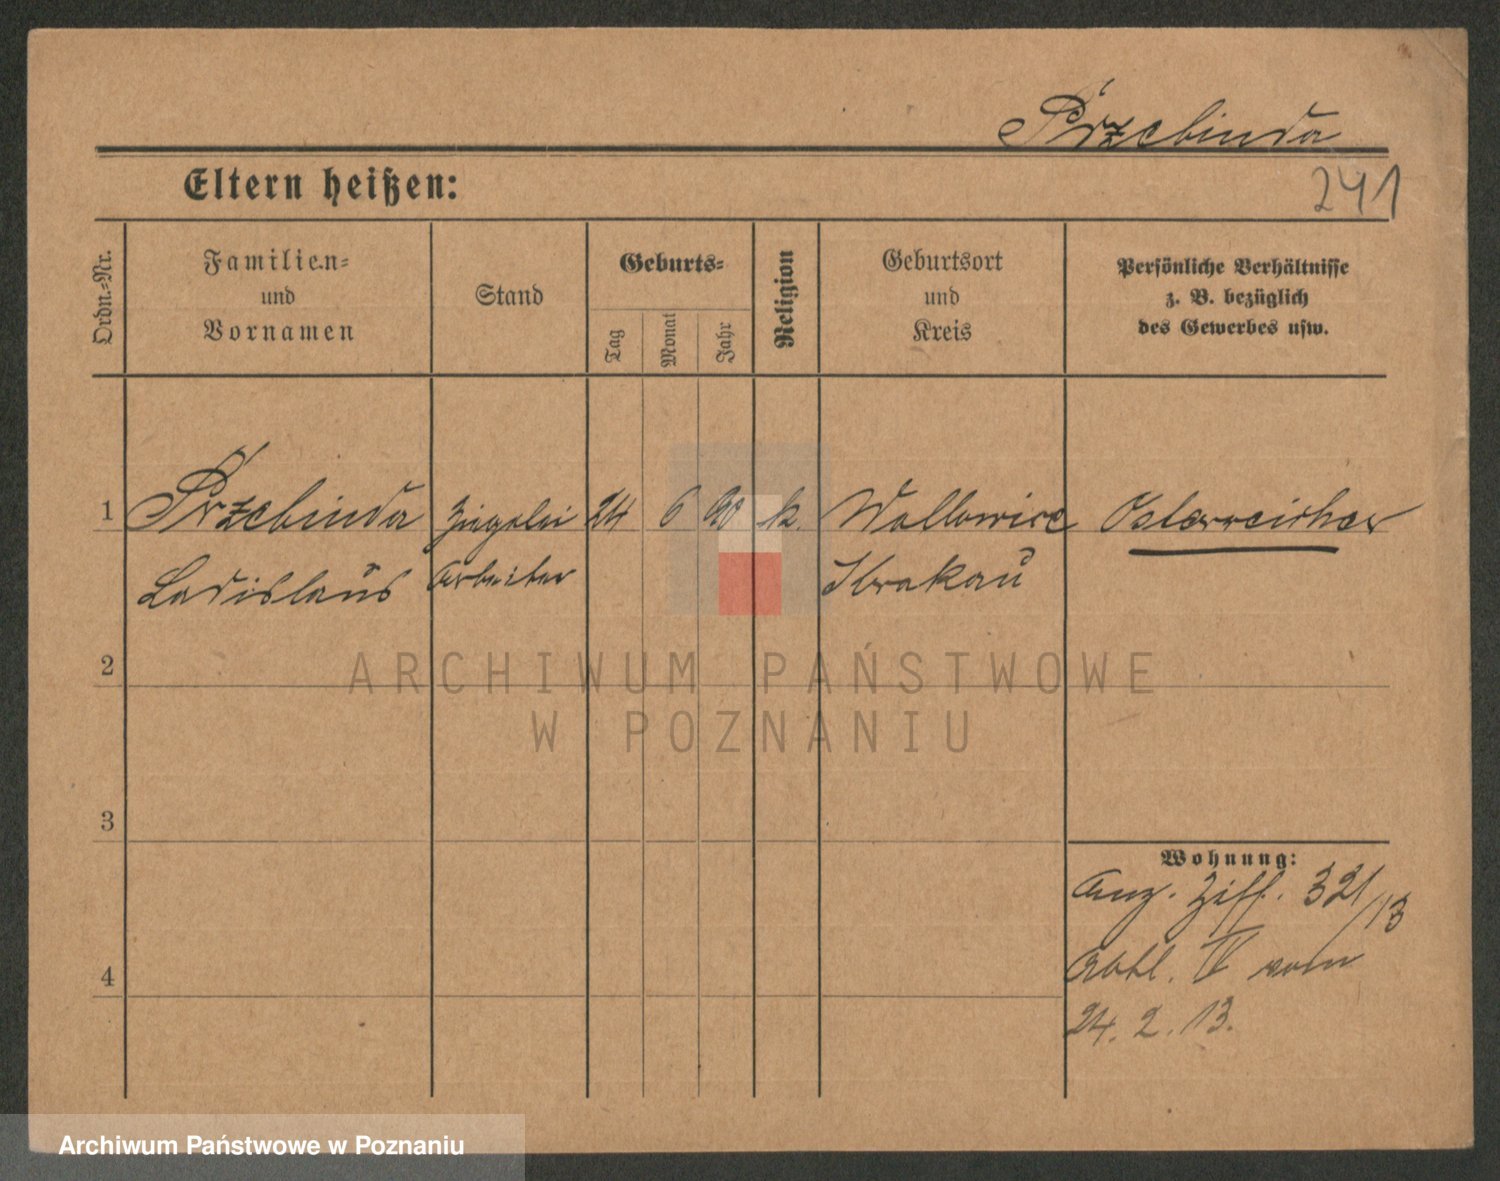 Przebinda
Eltern heißen:
241
Ordn.-Nr.
Familien-
und
Vornamen
Stand
Geburts-
Tag
Monat
Jahr
Religion
Geburtsort
und
Kreis
Persönliche Verhältnisse
z. B. bezüglich
des Gewerbes usw.
1 Przebinda Ziegelei 24 6 90 k. Wollowice Österreicher
Ladislaus Arbeiter Krakau
2
ARCHIWUM PAŃSTWOWE
W POZNANIU
3
Wohnung:
Anz. Ziff. 321/13
4 Abtl. V vom
24. 2. 13.
Archiwum Państwowe w Poznaniu